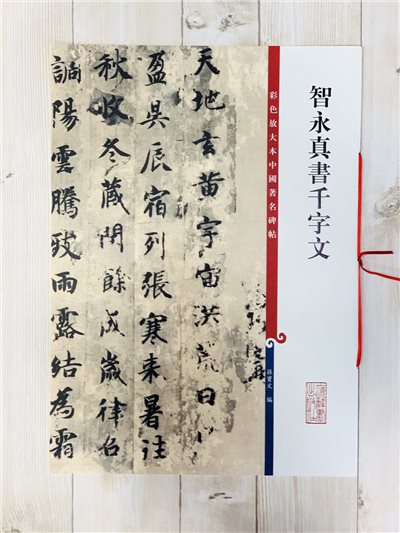 智永真書千字文
彩色放大本中國著名碑帖
孫寶文 編
天地玄黄宇宙洪荒日
盈昃辰宿列張寒来暑往
秋收冬藏閏餘成歲律召
調陽雲騰致雨露結為霜